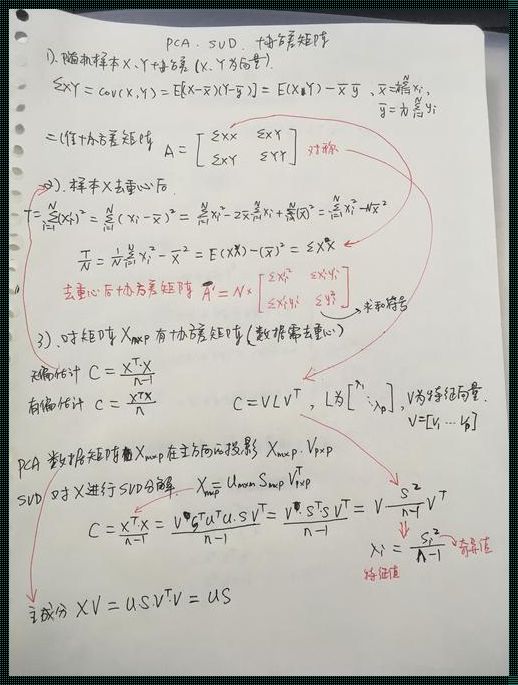 PCA. SVD. 协方差矩阵
1). 随机样本X、Y协方差(X、Y为向量).
ΣXY = cov(X,Y) = E[(X-x̄)(Y-ȳ)] = E(XY) - x̄ȳ , x̄ = 1/N Σ_{i=1}^{N} xi,
ȳ = 1/N Σ_{i=1}^{N} yi
二维协方差矩阵 A = [ΣXX ΣXY
ΣXY ΣYY] 对称
2). 样本X去重心后.
T = Σ_{i=1}^{N} (xi')² = Σ_{i=1}^{N} (xi-x̄)² = Σ_{i=1}^{N} xi² - 2x̄ Σ_{i=1}^{N} xi + Σ_{i=1}^{N} (x̄)² = Σ_{i=1}^{N} xi² - Nx̄²
T/N = 1/N Σ_{i=1}^{N} xi² - x̄² = E(XX) - (x̄)² = ΣXX
去重心后协方差矩阵 A' = N* [Σxi² Σxiyi
Σxiyi Σyi²] 求和符号
3). 对矩阵X_{n×p}有协方差矩阵(数据需去重心)
无偏估计 C = X^T·X / n-1
有偏估计 C = X^T X / n
C = VLV^T , L为[λ1 ⋱ λp], V为特征向量.
V=[V1 ⋯ Vp]
PCA 数据矩阵X_{n×p}在主方向V投影 X_{n×p}·V_{p×p}
SVD 对X进行SVD分解. X_{n×p} = U_{n×n} S_{n×p} V^T_{p×p}
C = X^T·X / n-1 = V·S^T U^T U·S V^T / n-1 = V·S^T S V^T / n-1 = V S²/n-1 V^T
λi = Si² / n-1 奇异值
特征值
主成分 XV = USV^T·V = US